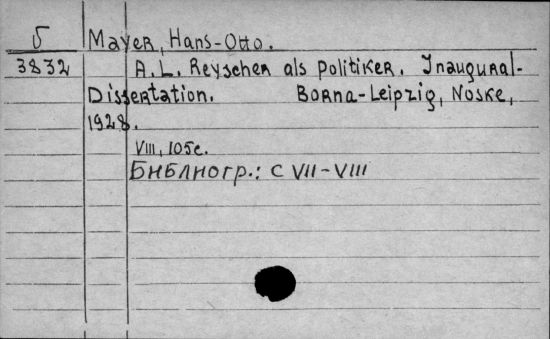 Б Mayer, Hans-Otto.
3832 A. L. Reyscher als Politiker. Inaugural-
Dissertation. Borna-Leipzig, Noske,
1928.
VIII, 105c.
Библиогр.: с VII-VIII